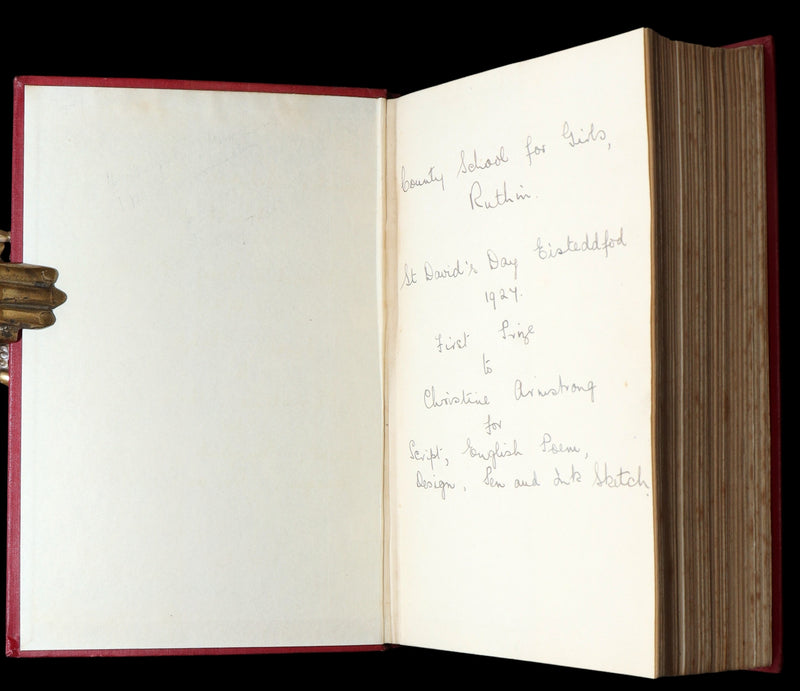 County School for Girls,
Ruthin.
St David's Day Eisteddfod
1927.
First Prize
to
Christine Armstrong
for
Script, English Poem,
Design, Pen and Ink Sketch.